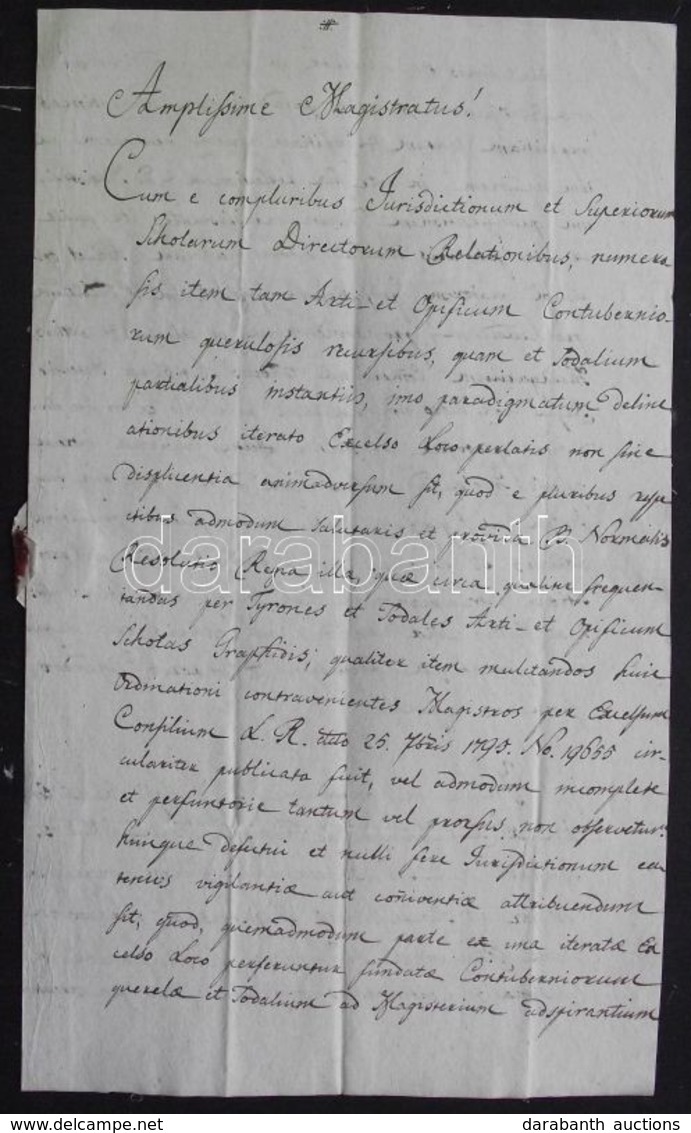 Amplissime Magistratus!
Cum e compluribus Jurisdictionum et Superiorum
Scholarum Directorum Relationibus, numero
sis item tam Arti- et Opificum Contubernio-
rum querulosis recursibus, quam et Sodalium
partialibus instantiis, imo paradigmatum deline
ationibus iterato Excelso Loco perlatis non sine
displicentia animadversum sit, quod e pluribus respe
ctibus admodum salutaris et provida B. Normalis
Resolutio Regia illa, quae circa qualiter frequen
tandas per Tyrones et Sodales Arti- et Opificum
Scholas Graphidis; qualiter item mulctandos huic
Ordinationi contravenientes Magistros per Excelsum
Consilium L. R. ddto 25. 7bris 1795. No. 19655 cir-
culariter publicata fuit, vel admodum incomplete
et perfunctorie tantum vel prorsus non observetur:
huncque defectui et nulli fere Jurisdictionum ea
tenus vigilantiae aut coniventiae attribuendum
sit; quod, quemadmodum parte ex una iteratae Ex
celso Loco perferuntur fundatae Contuberniorum
querelae et Sodalium ad Magisterium adspirantium
darabanth
darabanth auctions